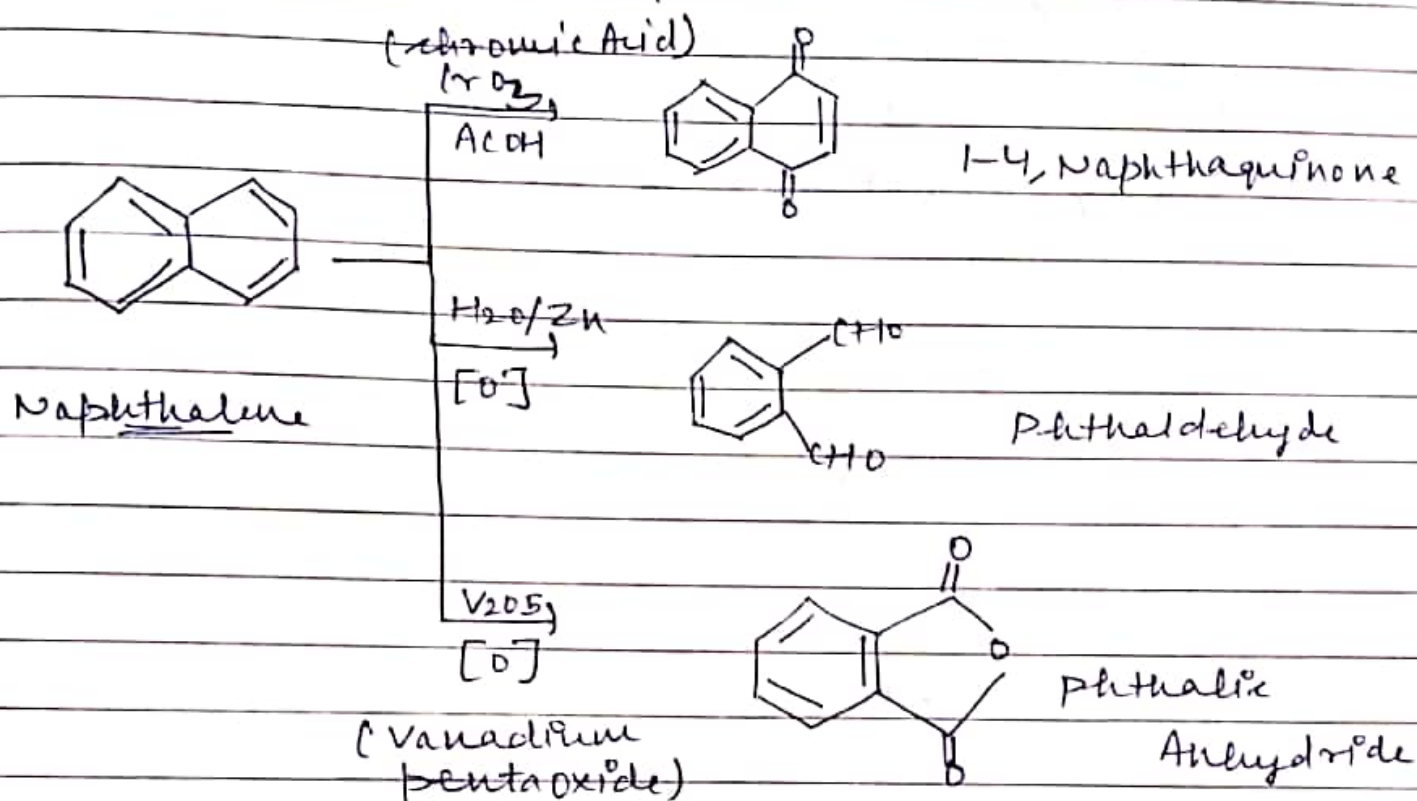 (chromic Acid)
CrO3
ACOH
O
O
1-4, Naphthaquinone
H2O/Zn
[O]
CHO
CHO
Naphthalene
Phthaldehyde
V2O5
[O]
(Vanadium
pentaoxide)
O
O
O
phthalic
Anhydride